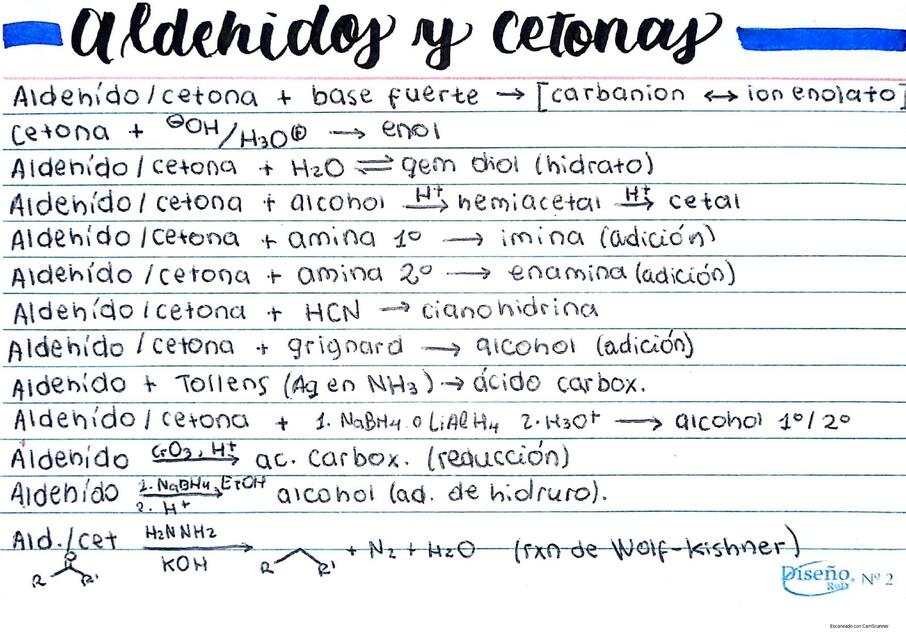 Aldehidos y cetonas
Aldehído/cetona + base fuerte → [carbanion ↔ ion enolato]
cetona + ⊖OH/H₃O⊕ → enol
Aldehído/cetona + H₂O ⇌ gem diol (hidrato)
Aldehído/cetona + alcohol H⁺→ hemiacetal H⁺→ cetal
Aldehído/cetona + amina 1º → imina (adición)
Aldehído/cetona + amina 2º → enamina (adición)
Aldehído/cetona + HCN → cianohidrina
Aldehído/cetona + grignard → alcohol (adición)
Aldehído + Tollens (Ag en NH₃) → ácido carbox.
Aldehído/cetona + 1. NaBH₄ o LiAlH₄ 2. H₃O⁺ → alcohol 1º/2º
Aldehído CrO₃, H⁺ → ac. carbox. (reducción)
Aldehído 1. NaBH₄, EtOH 2. H⁺ → alcohol (ad. de hidruro).
Ald./cet H₂NNH₂ KOH → R R' + N₂ + H₂O (rxn de Wolf-kishner)
O
R R'
Diseño R&D Nº 2
Escaneado con CamScanner